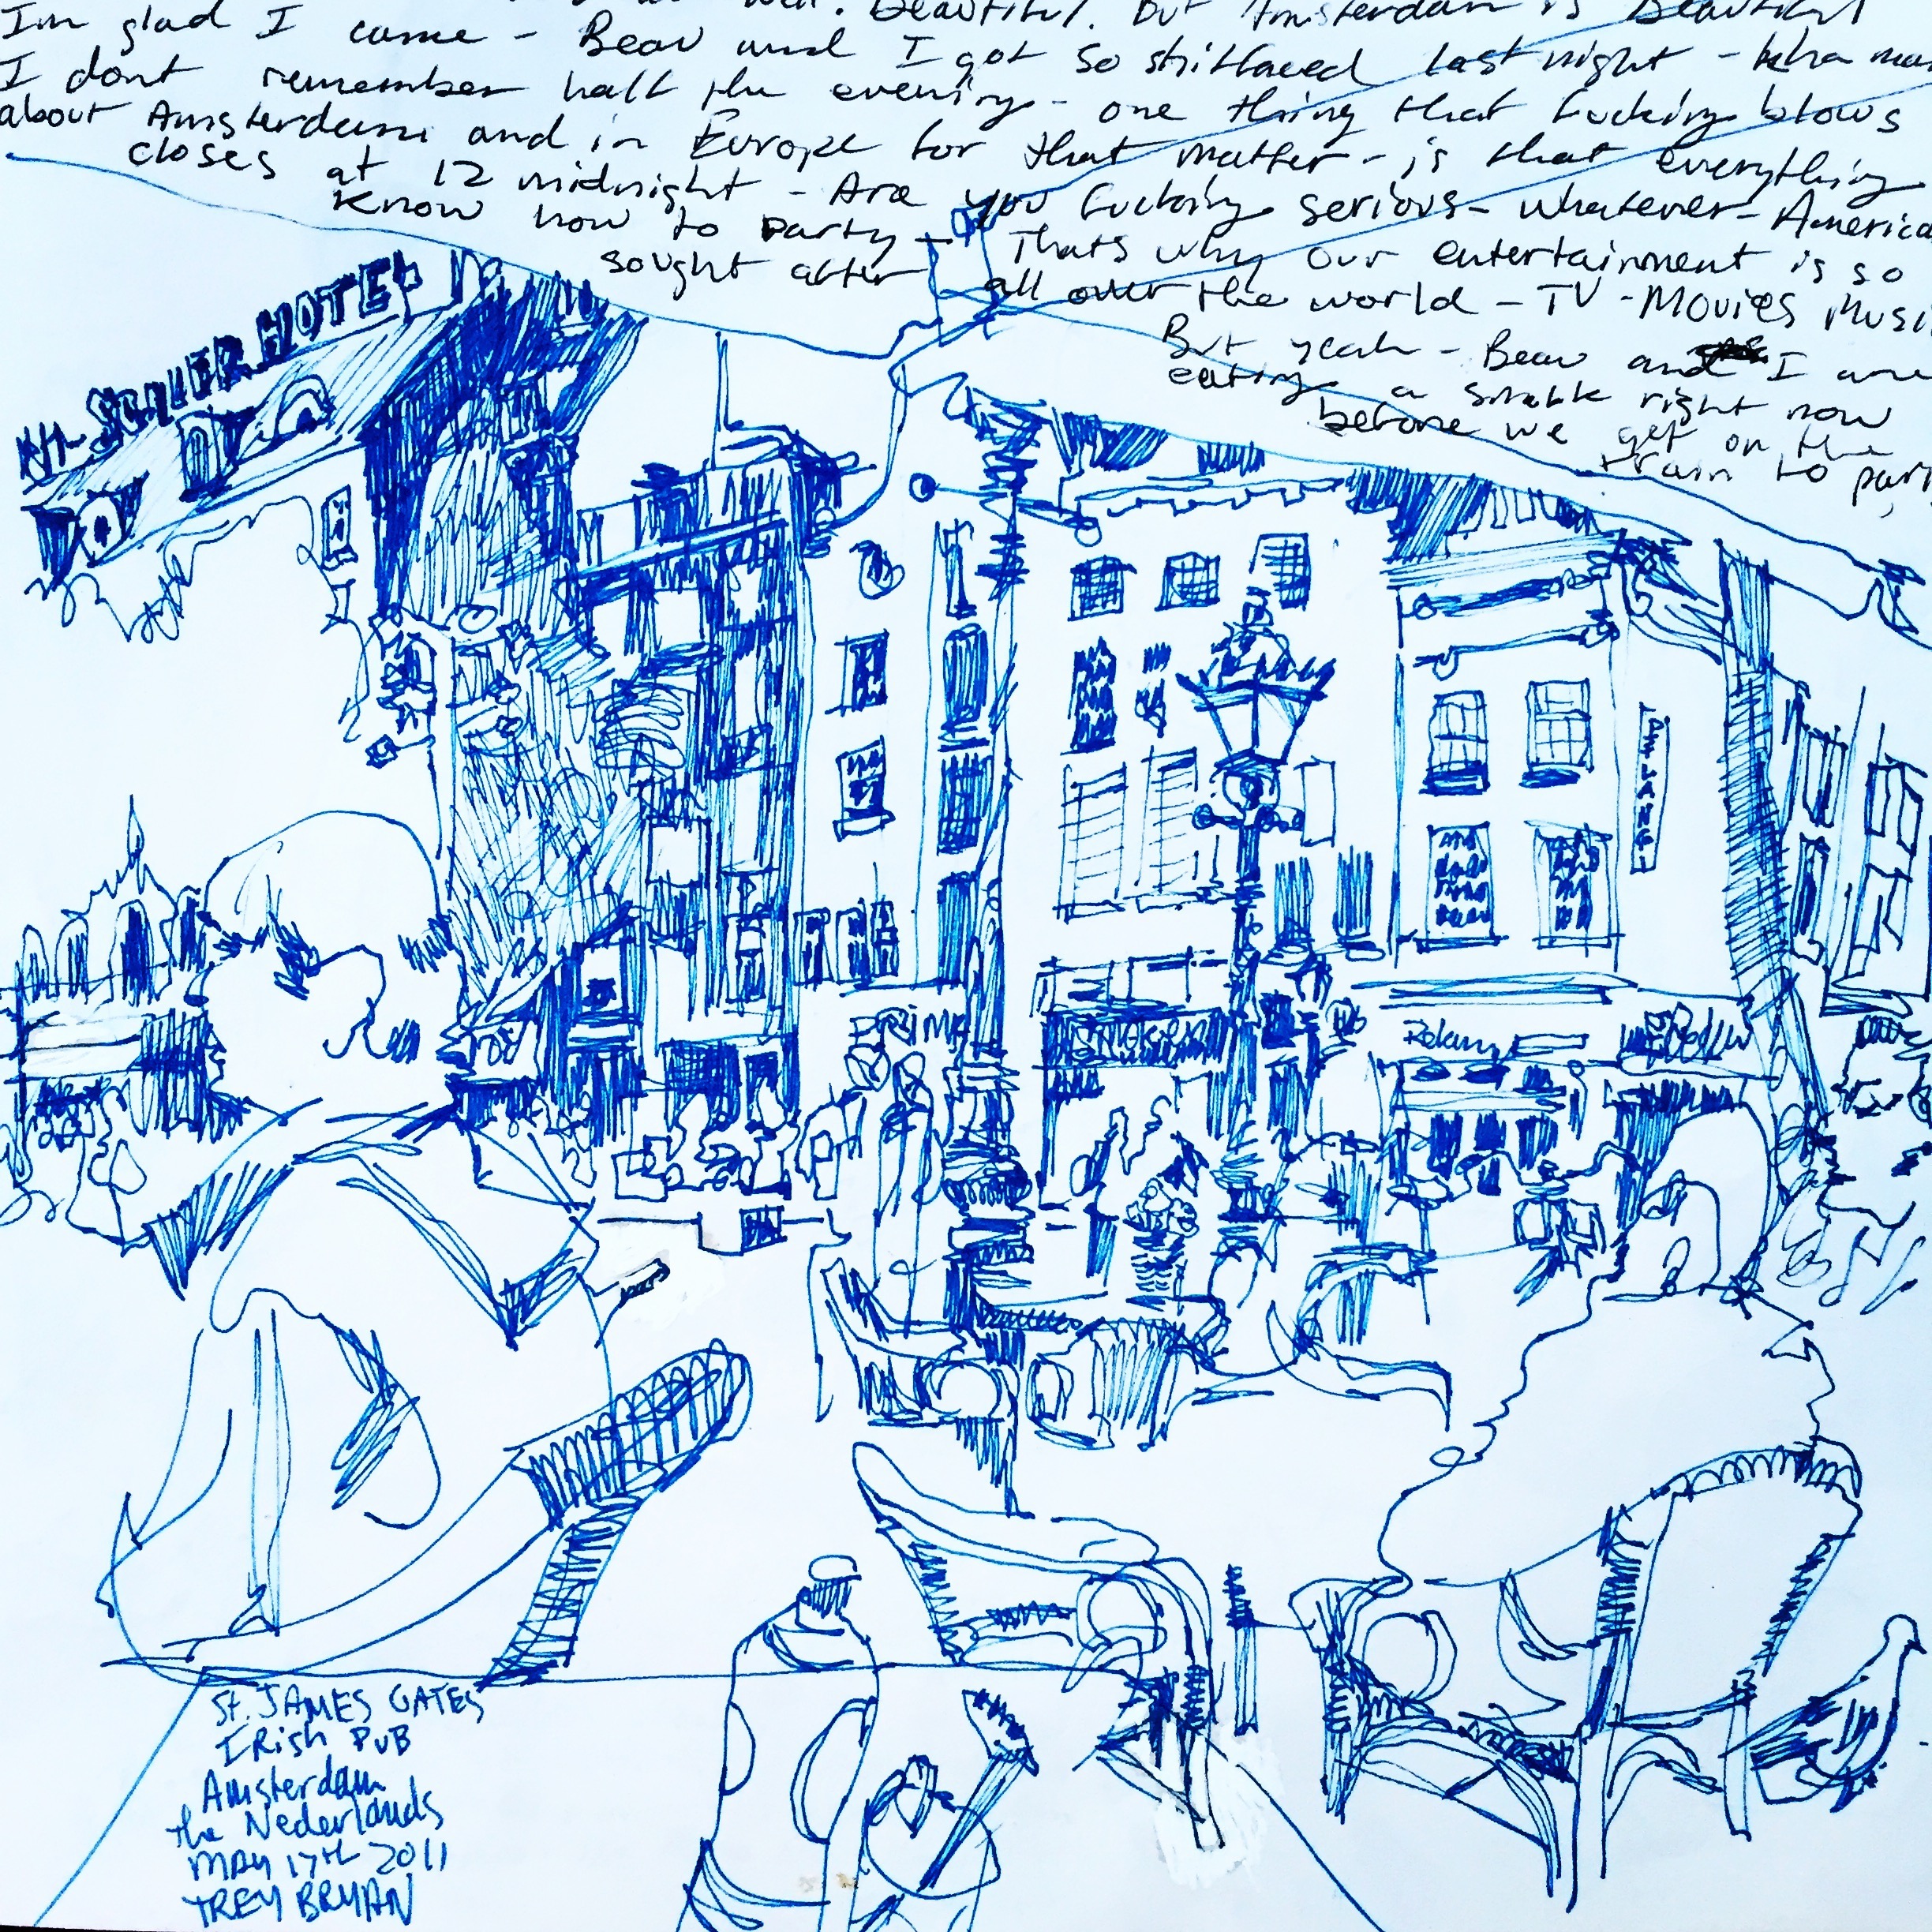 well. Beautiful. But Amsterdam is Beautiful
I'm glad I came - Beau and I got so shitfaced last night - haha man
I dont remember half the evening - one thing that fucking blows
about Amsterdam and in Europe for that matter - is that everything
closes at 12 midnight - Are you fucking serious - whatever - America
know how to party - Thats why our entertainment is so
sought after all over the world - TV - Movies Music
But yeah - Beau and I are
eating a snack right now
before we get on the
train to pari
NH SCHILLER HOTEL
PRIME
Rokerij
St. JAMES GATES
IRish PUB
Amsterdam
the Nederlands
MAY 17th 2011
TREY BRYAN